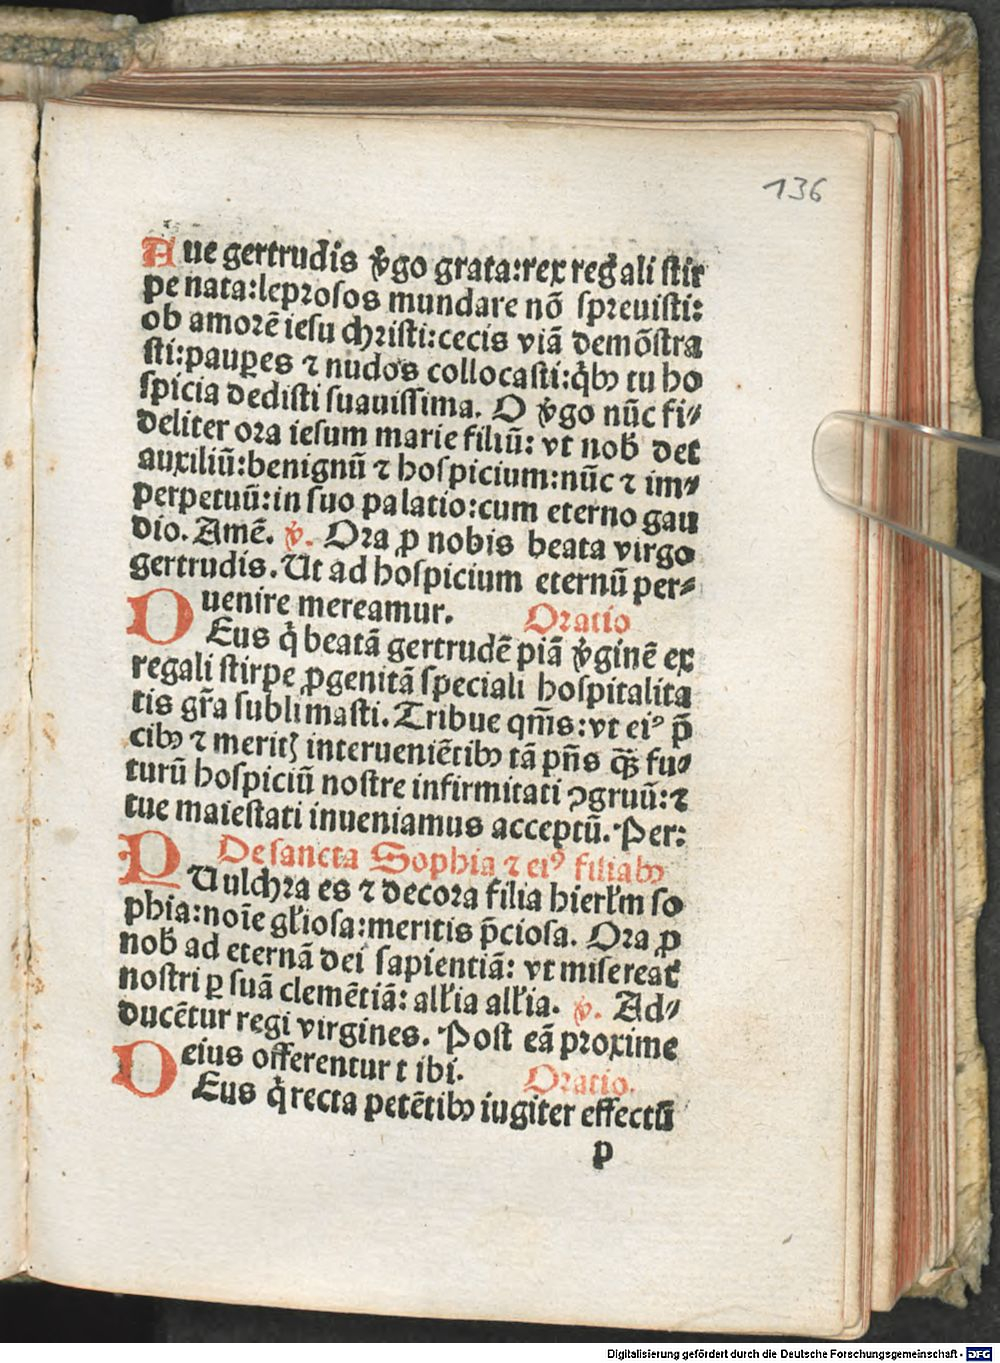 136
Aue gertrudis v̄go grata:rex regali stir
pe nata:leprosos mundare nō spreuisti:
ob amorē iesu christi:cecis viā demōstra
sti:paup̱es ⁊ nudos collocasti:q̇bꝫ tu ho
spicia dedisti suauissima. O v̄go nūc fi⸗
deliter ora iesum marie filiū: vt nob̄ det
auxiliū:benignū ⁊ hospicium:nūc ⁊ im⸗
perpetuū:in suo palatio:cum eterno gau
dio. Amē. v̄. Ora ꝓ nobis beata virgo
gertrudis. Ut ad hospicium eternū per⸗
uenire mereamur. Oratio
DEus q̇ beatā gertrudē piā v̄ginē ex
regali stirpe ꝓgenitā speciali hospitalita
tis gr̄a sublimasti. Tribue qm̄s:vt eiꝰ p̄
cibꝫ ⁊ meritꝭ interueniētibꝫ tā pn̄s qꝫ̄ fu⸗
turū hospiciū nostre infirmitati ꝯgruū:⁊
tue maiestati inueniamus acceptū. Per:
De sancta Sophia ⁊ eiꝰ filiabꝫ
PUulchra es ⁊ decora filia hierłm so
phia:noīe gło̅sa:meritis p̄ciosa. Ora ꝓ
nob̄ ad eternā dei sapientiā: vt misereat̄
nostri ꝑ suā clemētiā: ałłia ałłia. v̄. Ad⸗
ducētur regi virgines. Post eā proxime
eius offerentur t ibi. Oratio.
DEus q̇ recta petētibꝫ iugiter effectū
p
Digitalisierung gefördert durch die Deutsche Forschungsgemeinschaft - DFG